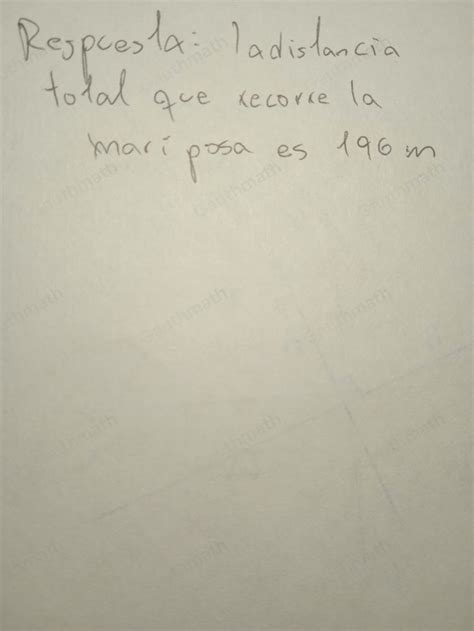 Respuesta: la distancia
total que recorre la
mariposa es 196 m